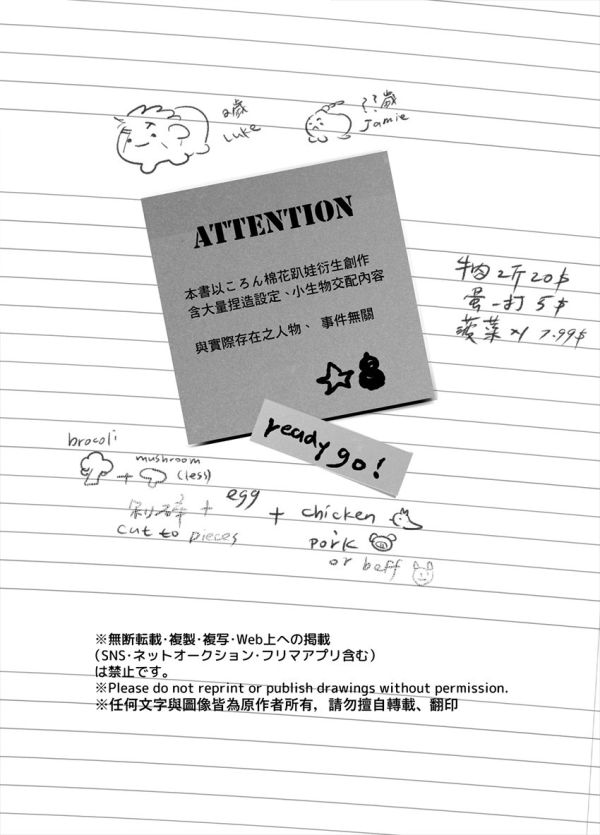 2歲
Luke
??歲
Jamie
ATTENTION
本書以ころん棉花趴娃衍生創作
含大量捏造設定、小生物交配內容
與實際存在之人物、 事件無關
牛肉 2斤 20$
蛋一打 5$
菠菜 x1 7.99$
ready go!
brocoli
mushroom
+ (less)
剁碎 + egg + chicken
cut to pieces
pork
or beff
※無断転載・複製・複写・Web上への掲載
(SNS・ネットオークション・フリマアプリ含む)
は禁止です。
※Please do not reprint or publish drawings without permission.
※任何文字與圖像皆為原作者所有,請勿擅自轉載、翻印